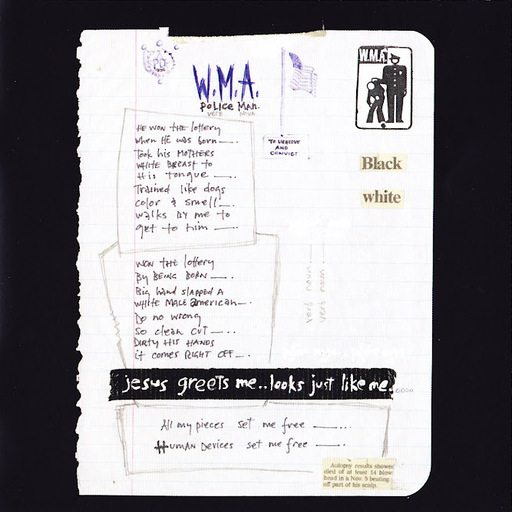 W.M.A.
POLICE MAN.
W.M.A.
TO OBSERVE
AND
CONVICT
HE WON THE lottery
when HE was born ——..
Took his MOTHERS
WHITE BREAST to
His tongue ——..
Trained like dogs
color & smell—..
walks BY me to
get to him ——..
Black
white
WON THE lottery
By BEING BORN ——..
Big hand SLAPPED A
WHITE MALE american—..
Do no wrong
So clean CUT ——..
DIRTY HIS HANDS
it comes RIGHT OFF —..
verb noun
verb noun
jesus greets me..looks just like me.
All my pieces set me free ——...
HUMAN DEVICES set me free ——..
Autopsy results showed
died of at least 14 blow
head in a Nov. 5 beating
off part of his scalp.